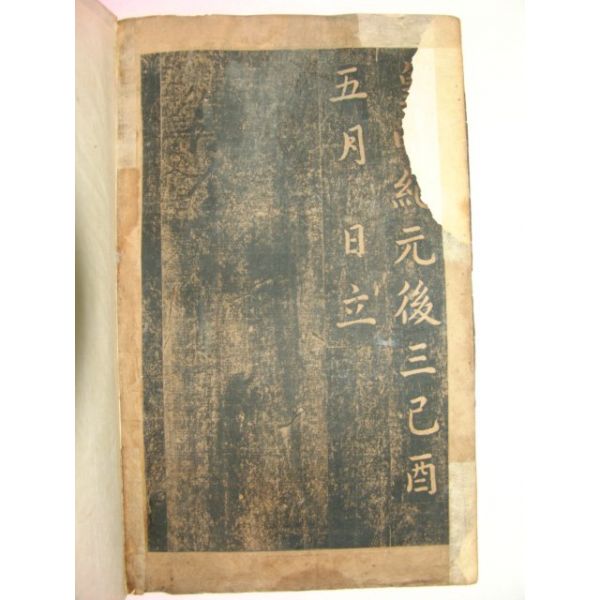 紀元後三己酉
五月 日立